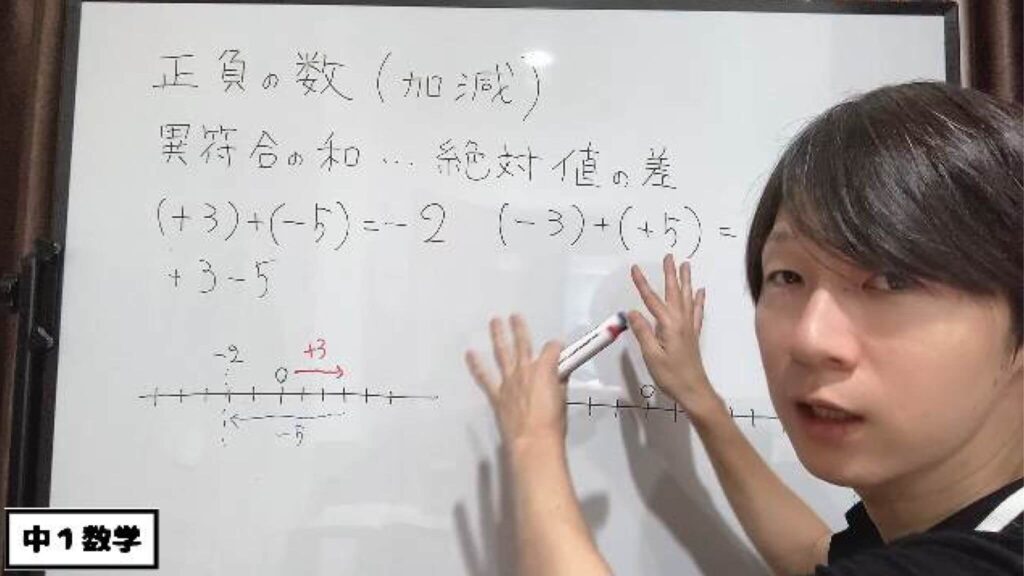 正負の数(加減)
異符合の和…絶対値の差
(+3)+(-5)=-2 (-3)+(+5)=
+3-5
-2 0 +3
-5
0
中1数学